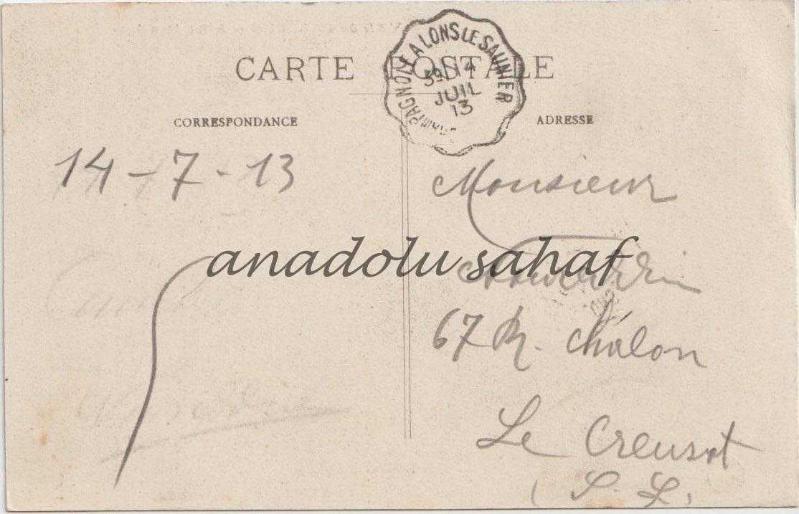 CARTE POSTALE
CHAMPAGNOLE A LONS LE SAUNIER
14
JUIL
13
CORRESPONDANCE
ADRESSE
14-7-13
Monsieur
anadolu sahaf
67 R. Châlon
Le Creusot
(S. L.